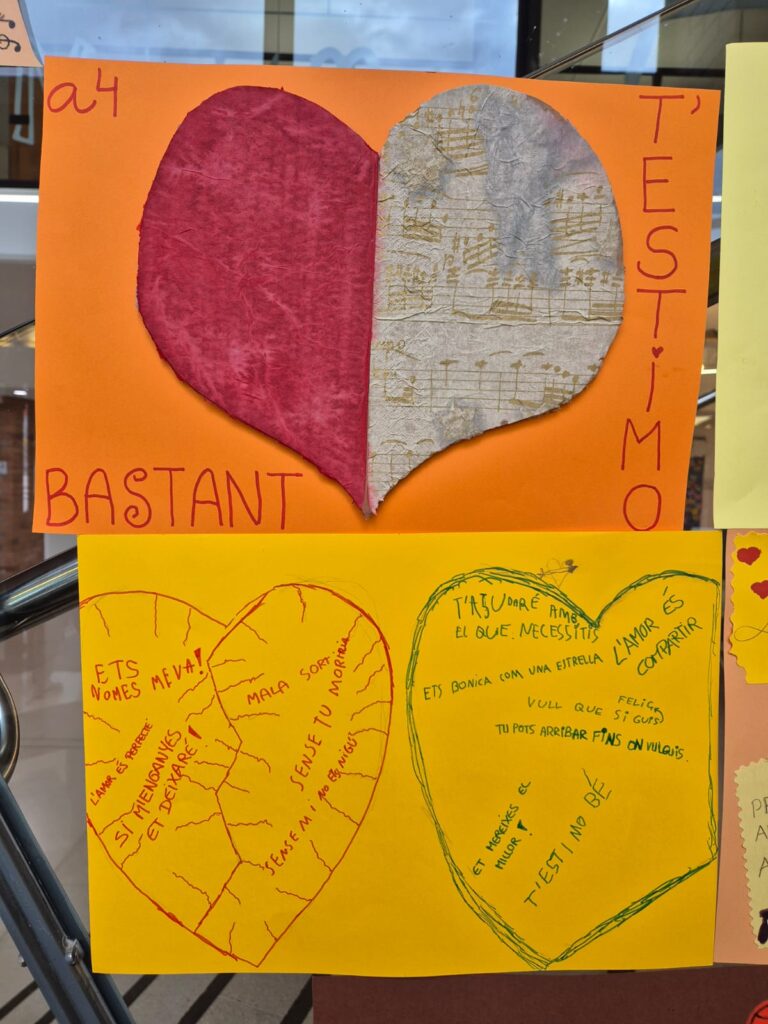 a4
T'ESTIMO
BASTANT
ETS
NOMES MEVA!
L'AMOR ÉS PERFECTE
SI M'ENGANYES
ET DEIXARÉ!
MALA SORT!
SENSE TU MORIRIA
SENSE MI NO ETS NINGÚ
T'AJUDARÉ AMB
EL QUE NECESSITIS
L'AMOR ÉS
COMPARTIR
ETS BONICA COM UNA ESTRELLA
VULL QUE FELIÇ
SIGUIS
TU POTS ARRIBAR FINS ON VULGUIS.
ET MEREIXES EL
MILLOR!
T'ESTIMO BÉ